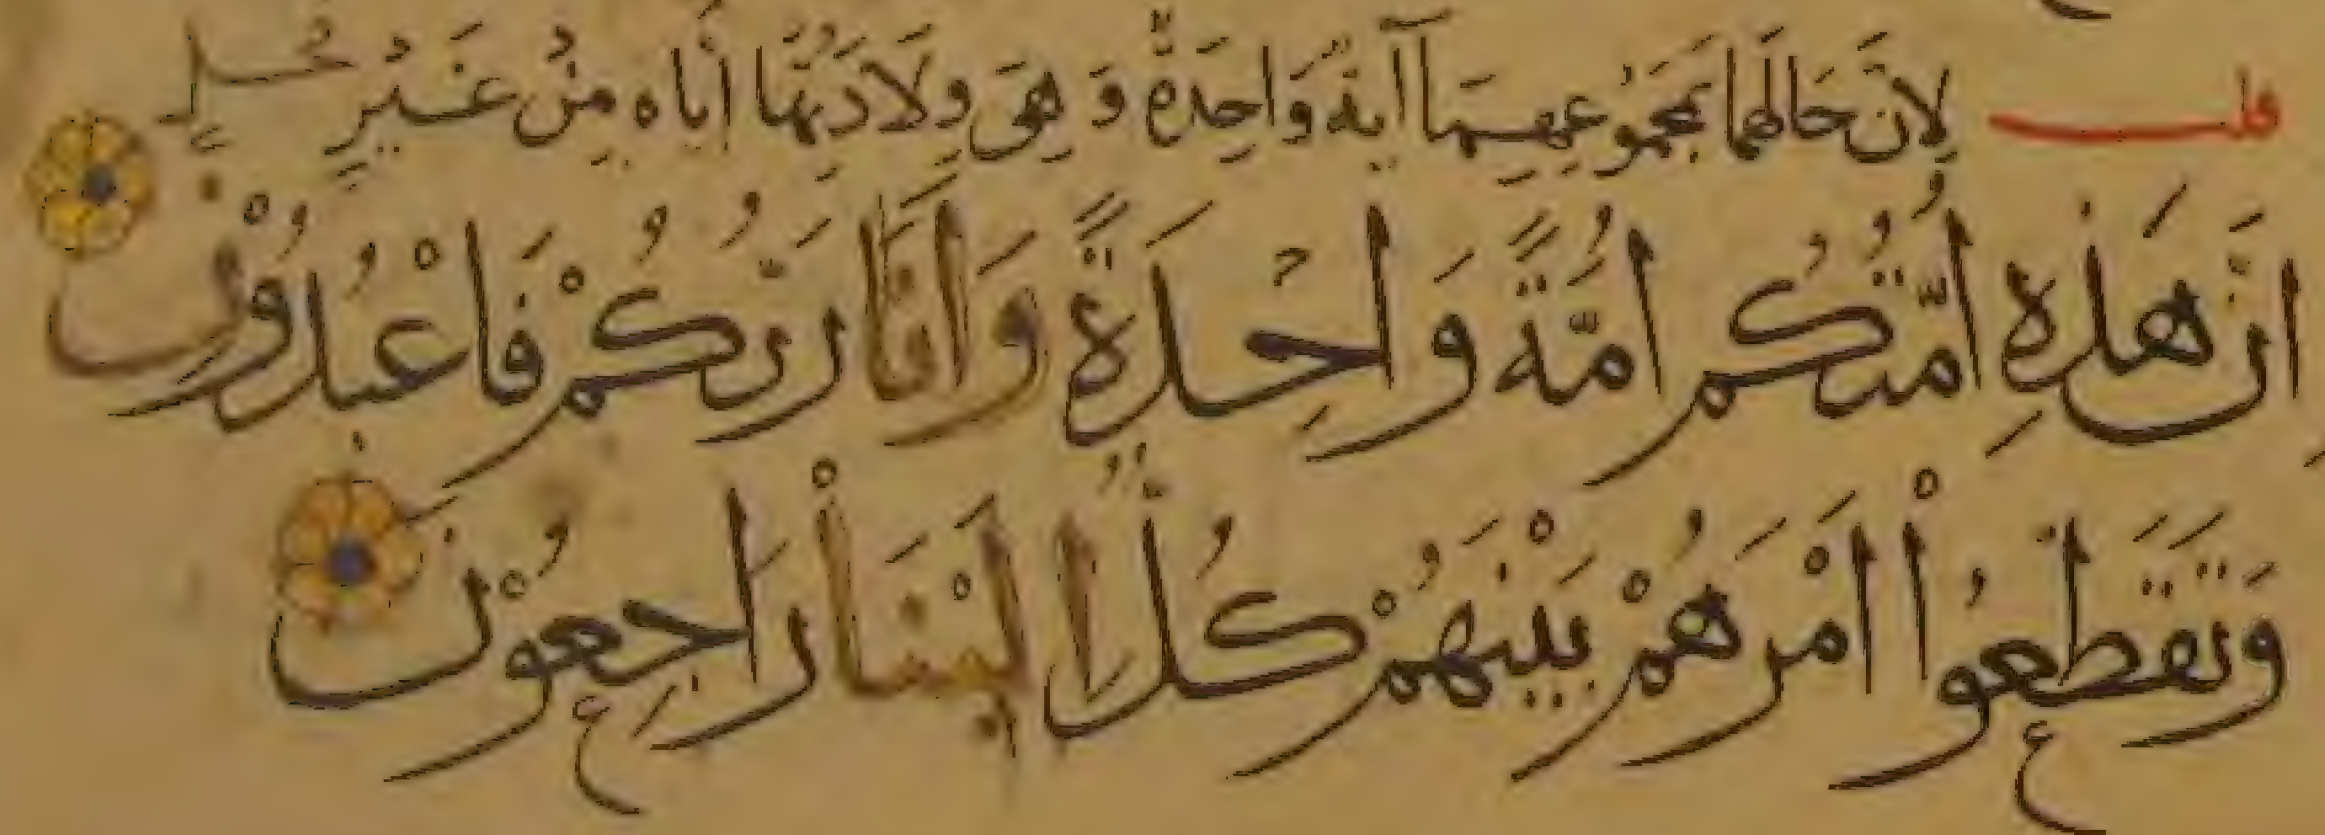 قلت لِاَنَّ حَالَهُمَا بِمَجْمُوعِهِمَا آيَةٌ وَاحِدَةٌ وَهِىَ وِلَادَتُهَا أَيَاهُ مِنْ غَيْرِ فَحْلٍ
اِنَّ هَذِهِ اُمَّتُكُمْ اُمَّةً وَاحِدَةً وَاَنَا رَبُّكُمْ فَاعْبُدُوْنِ
وَتَقَطَّعُوْا اَمْرَهُمْ بَيْنَهُمْ كُلٌّ اِلَيْنَا رَاجِعُوْنَ